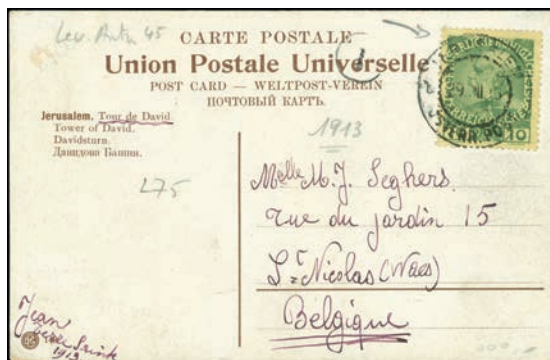 Lev. Autr. 45
CARTE POSTALE
Union Postale Universelle
POST CARD — WELTPOST-VEREIN
ПОЧТОВЫЙ КАРТЪ.
1
Jerusalem. Tour de David.
Tower of David.
Davidsturn.
Давидова Башня.
1913
275
Melle M. J. Seghers.
rue du jardin 15
St Nicolas (Waes)
Belgique
Jean
Terre Sainte
1913
10